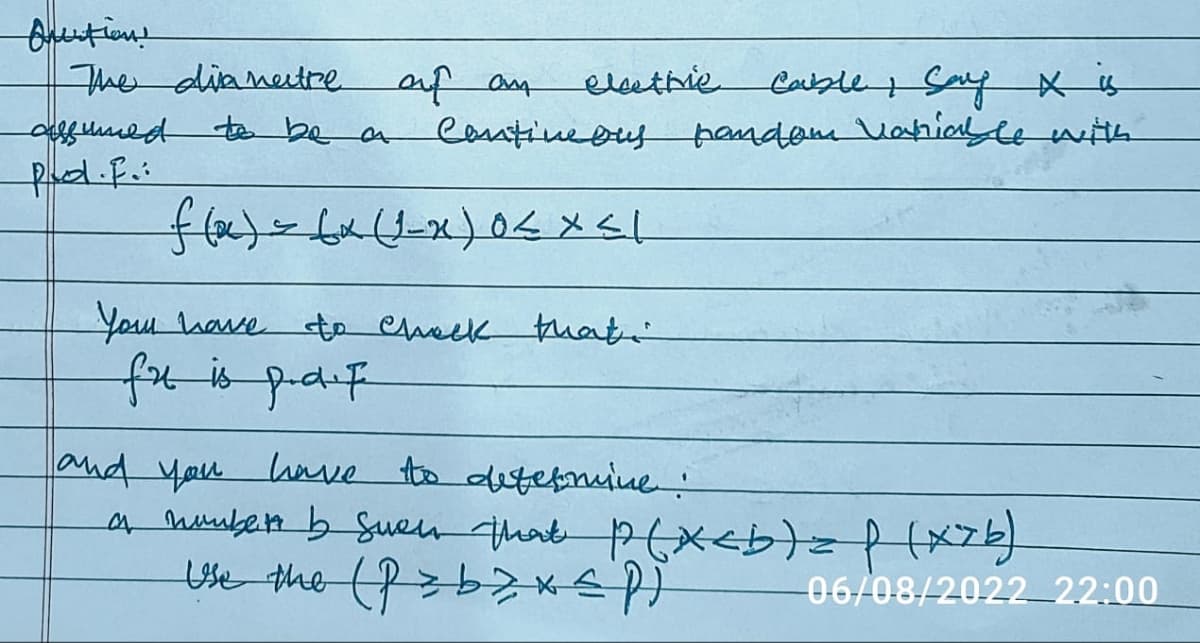 Question:
The diametre of an electric cable, say X is
assumed to be a continueous random variable with
p.d.f.:
f(x) = 6x(1-x) 0≤ x ≤1
You have to check that:
fx is p.d.F
and you have to determine:
a number b such that P(X<b) = P(X>b)
Use the (P ≥ b ≥ x ≤ P)
06/08/2022 22:00